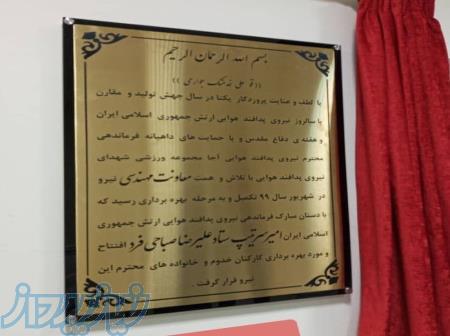 بسم الله الرحمان الرحیم
با لطف و عنایت پروردگار یکتا در سال جهش تولید و مقارن
با سالروز نیروی پدافند هوایی ارتش جمهوری اسلامی ایران
و هفته ی دفاع مقدس و با حمایت های داهیانه فرماندهی
محترم نیروی پدافند هوایی آجا مجموعه ورزشی شهدای
نیروی پدافند هوایی با تلاش و همت معاونت مهندسی نیرو
در شهریور سال ۹۹ تکمیل و به مرحله بهره برداری رسید که
با دستان مبارک فرماندهی نیروی پدافند هوایی ارتش جمهوری
اسلامی ایران امیر سرتیپ ستاد علیرضا صباحی فرد افتتاح
و مورد بهره برداری کارکنان خدوم و خانواده های محترم این
نیرو قرار گرفت.
نیازپرداز